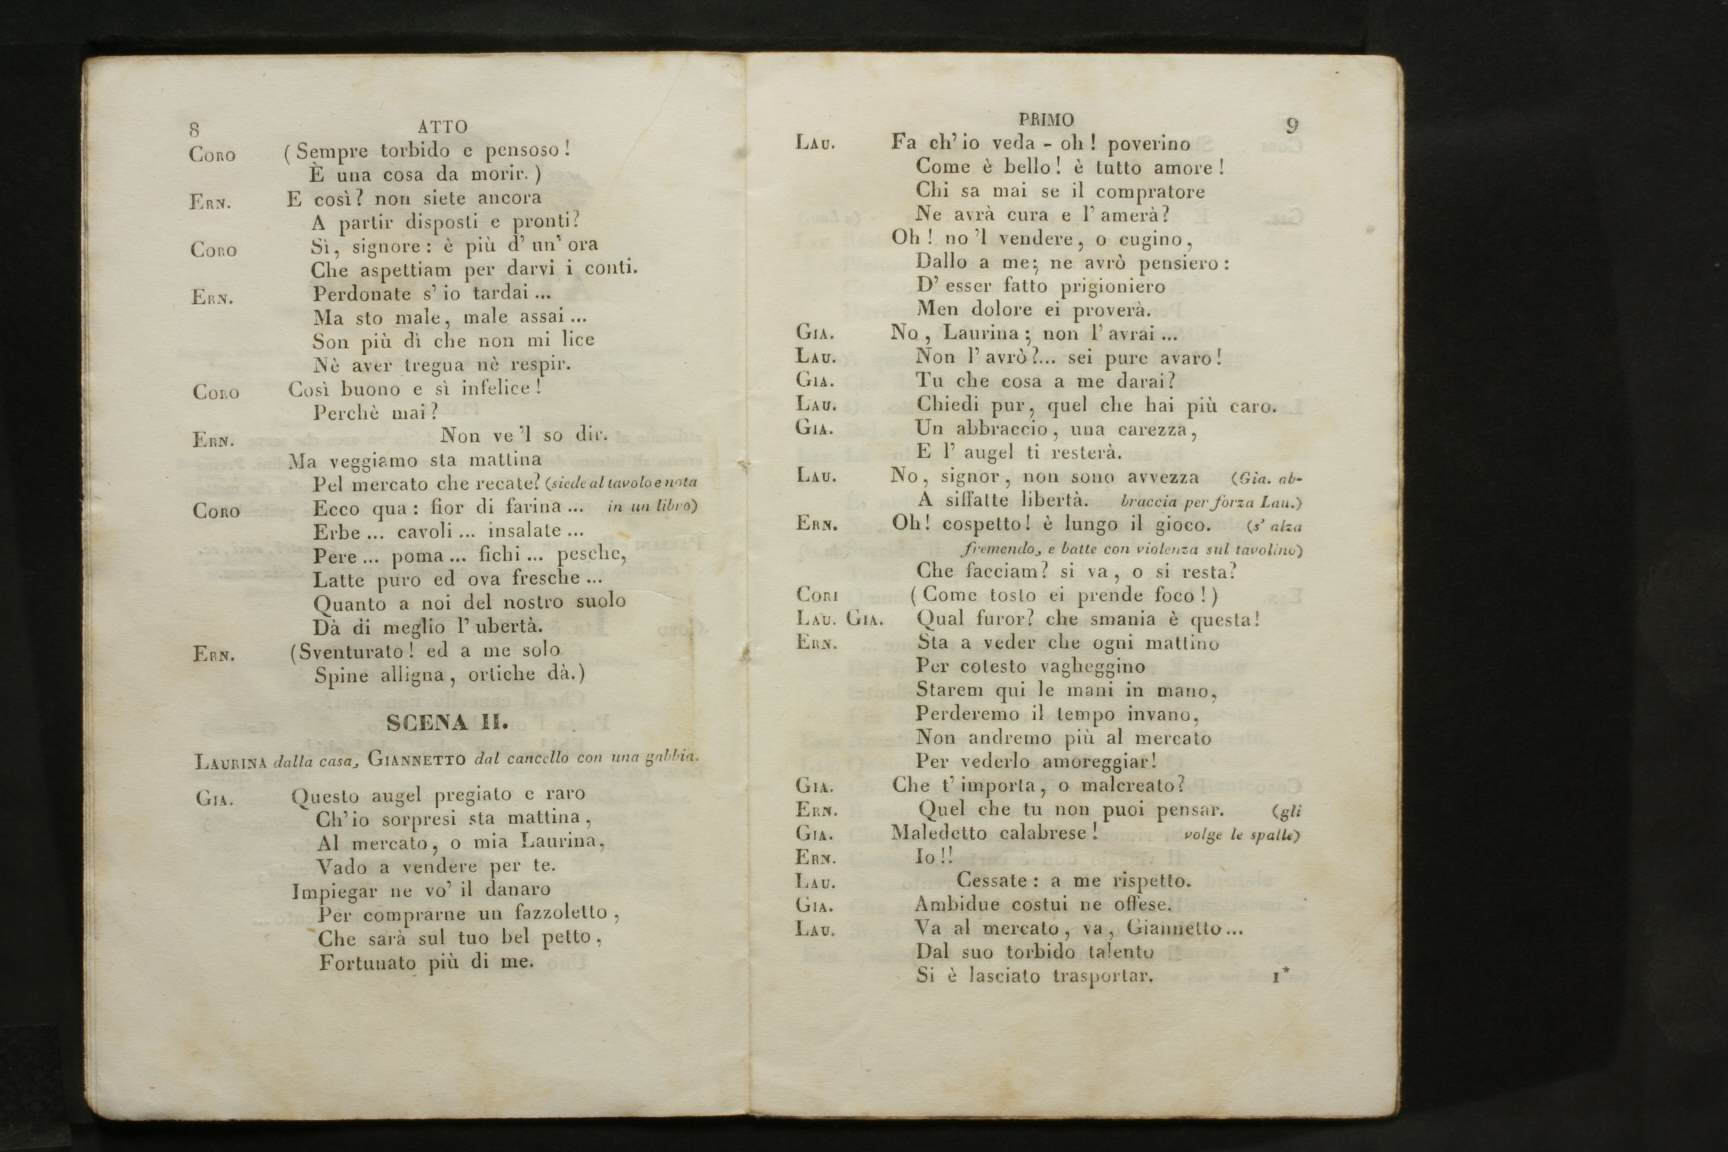 8 ATTO
CORO (Sempre torbido e pensoso!
È una cosa da morir.)
ERN. E così? non siete ancora
A partir disposti e pronti?
CORO Sì, signore: è più d' un' ora
Che aspettiam per darvi i conti.
ERN. Perdonate s' io tardai ...
Ma sto male, male assai ...
Son più dì che non mi lice
Nè aver tregua nè respir.
CORO Così buono e sì infelice!
Perchè mai?
ERN. Non ve 'l so dir.
Ma veggiamo sta mattina
Pel mercato che recate? (siede al tavolo e nota
CORO Ecco qua: fior di farina ... in un libro)
Erbe ... cavoli ... insalate ...
Pere ... poma ... fichi ... pesche,
Latte puro ed ova fresche ...
Quanto a noi del nostro suolo
Dà di meglio l' ubertà.
ERN. (Sventurato! ed a me solo
Spine alligna, ortiche dà.)
SCENA II.
LAURINA dalla casa, GIANNETTO dal cancello con una gabbia.
GIA. Questo augel pregiato e raro
Ch' io sorpresi sta mattina,
Al mercato, o mia Laurina,
Vado a vendere per te.
Impiegar ne vo' il danaro
Per comprarne un fazzoletto,
Che sarà sul tuo bel petto,
Fortunato più di me.
PRIMO 9
LAU. Fa ch' io veda - oh! poverino
Come è bello! è tutto amore!
Chi sa mai se il compratore
Ne avrà cura e l' amerà?
Oh! no 'l vendere, o cugino,
Dallo a me; ne avrò pensiero:
D' esser fatto prigioniero
Men dolore ei proverà.
GIA. No, Laurina; non l' avrai ...
LAU. Non l' avrò?... sei pure avaro!
GIA. Tu che cosa a me darai?
LAU. Chiedi pur, quel che hai più caro.
GIA. Un abbraccio, una carezza,
E l' augel ti resterà.
LAU. No, signor, non sono avvezza (Gia. ab-
A siffatte libertà. braccia per forza Lau.)
ERN. Oh! cospetto! è lungo il gioco. (s' alza
fremendo, e batte con violenza sul tavolino)
Che facciam? si va, o si resta?
CORI (Come tosto ei prende foco!)
LAU. GIA. Qual furor? che smania è questa!
ERN. Sta a veder che ogni mattino
Per cotesto vagheggino
Starem qui le mani in mano,
Perderemo il tempo invano,
Non andremo più al mercato
Per vederlo amoreggiar!
GIA. Che t' importa, o malcreato?
ERN. Quel che tu non puoi pensar. (gli
GIA. Maledetto calabrese! volge le spalle)
ERN. Io!!
LAU. Cessate: a me rispetto.
GIA. Ambidue costui ne offese.
LAU. Va al mercato, va, Giannetto...
Dal suo torbido talento
Si è lasciato trasportar. 1*